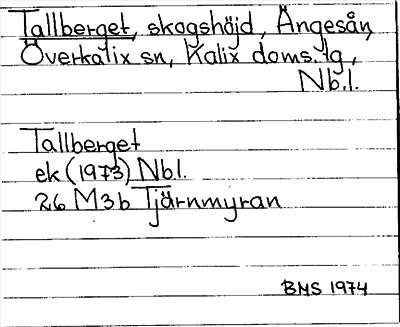 Tallberget, skogshöjd, Ängesån,
Överkalix sn, Kalix doms. tg,
Nb.l.
Tallberget
ek (1973) Nb.l.
26 M3b Tjärnmyran
BMS 1974